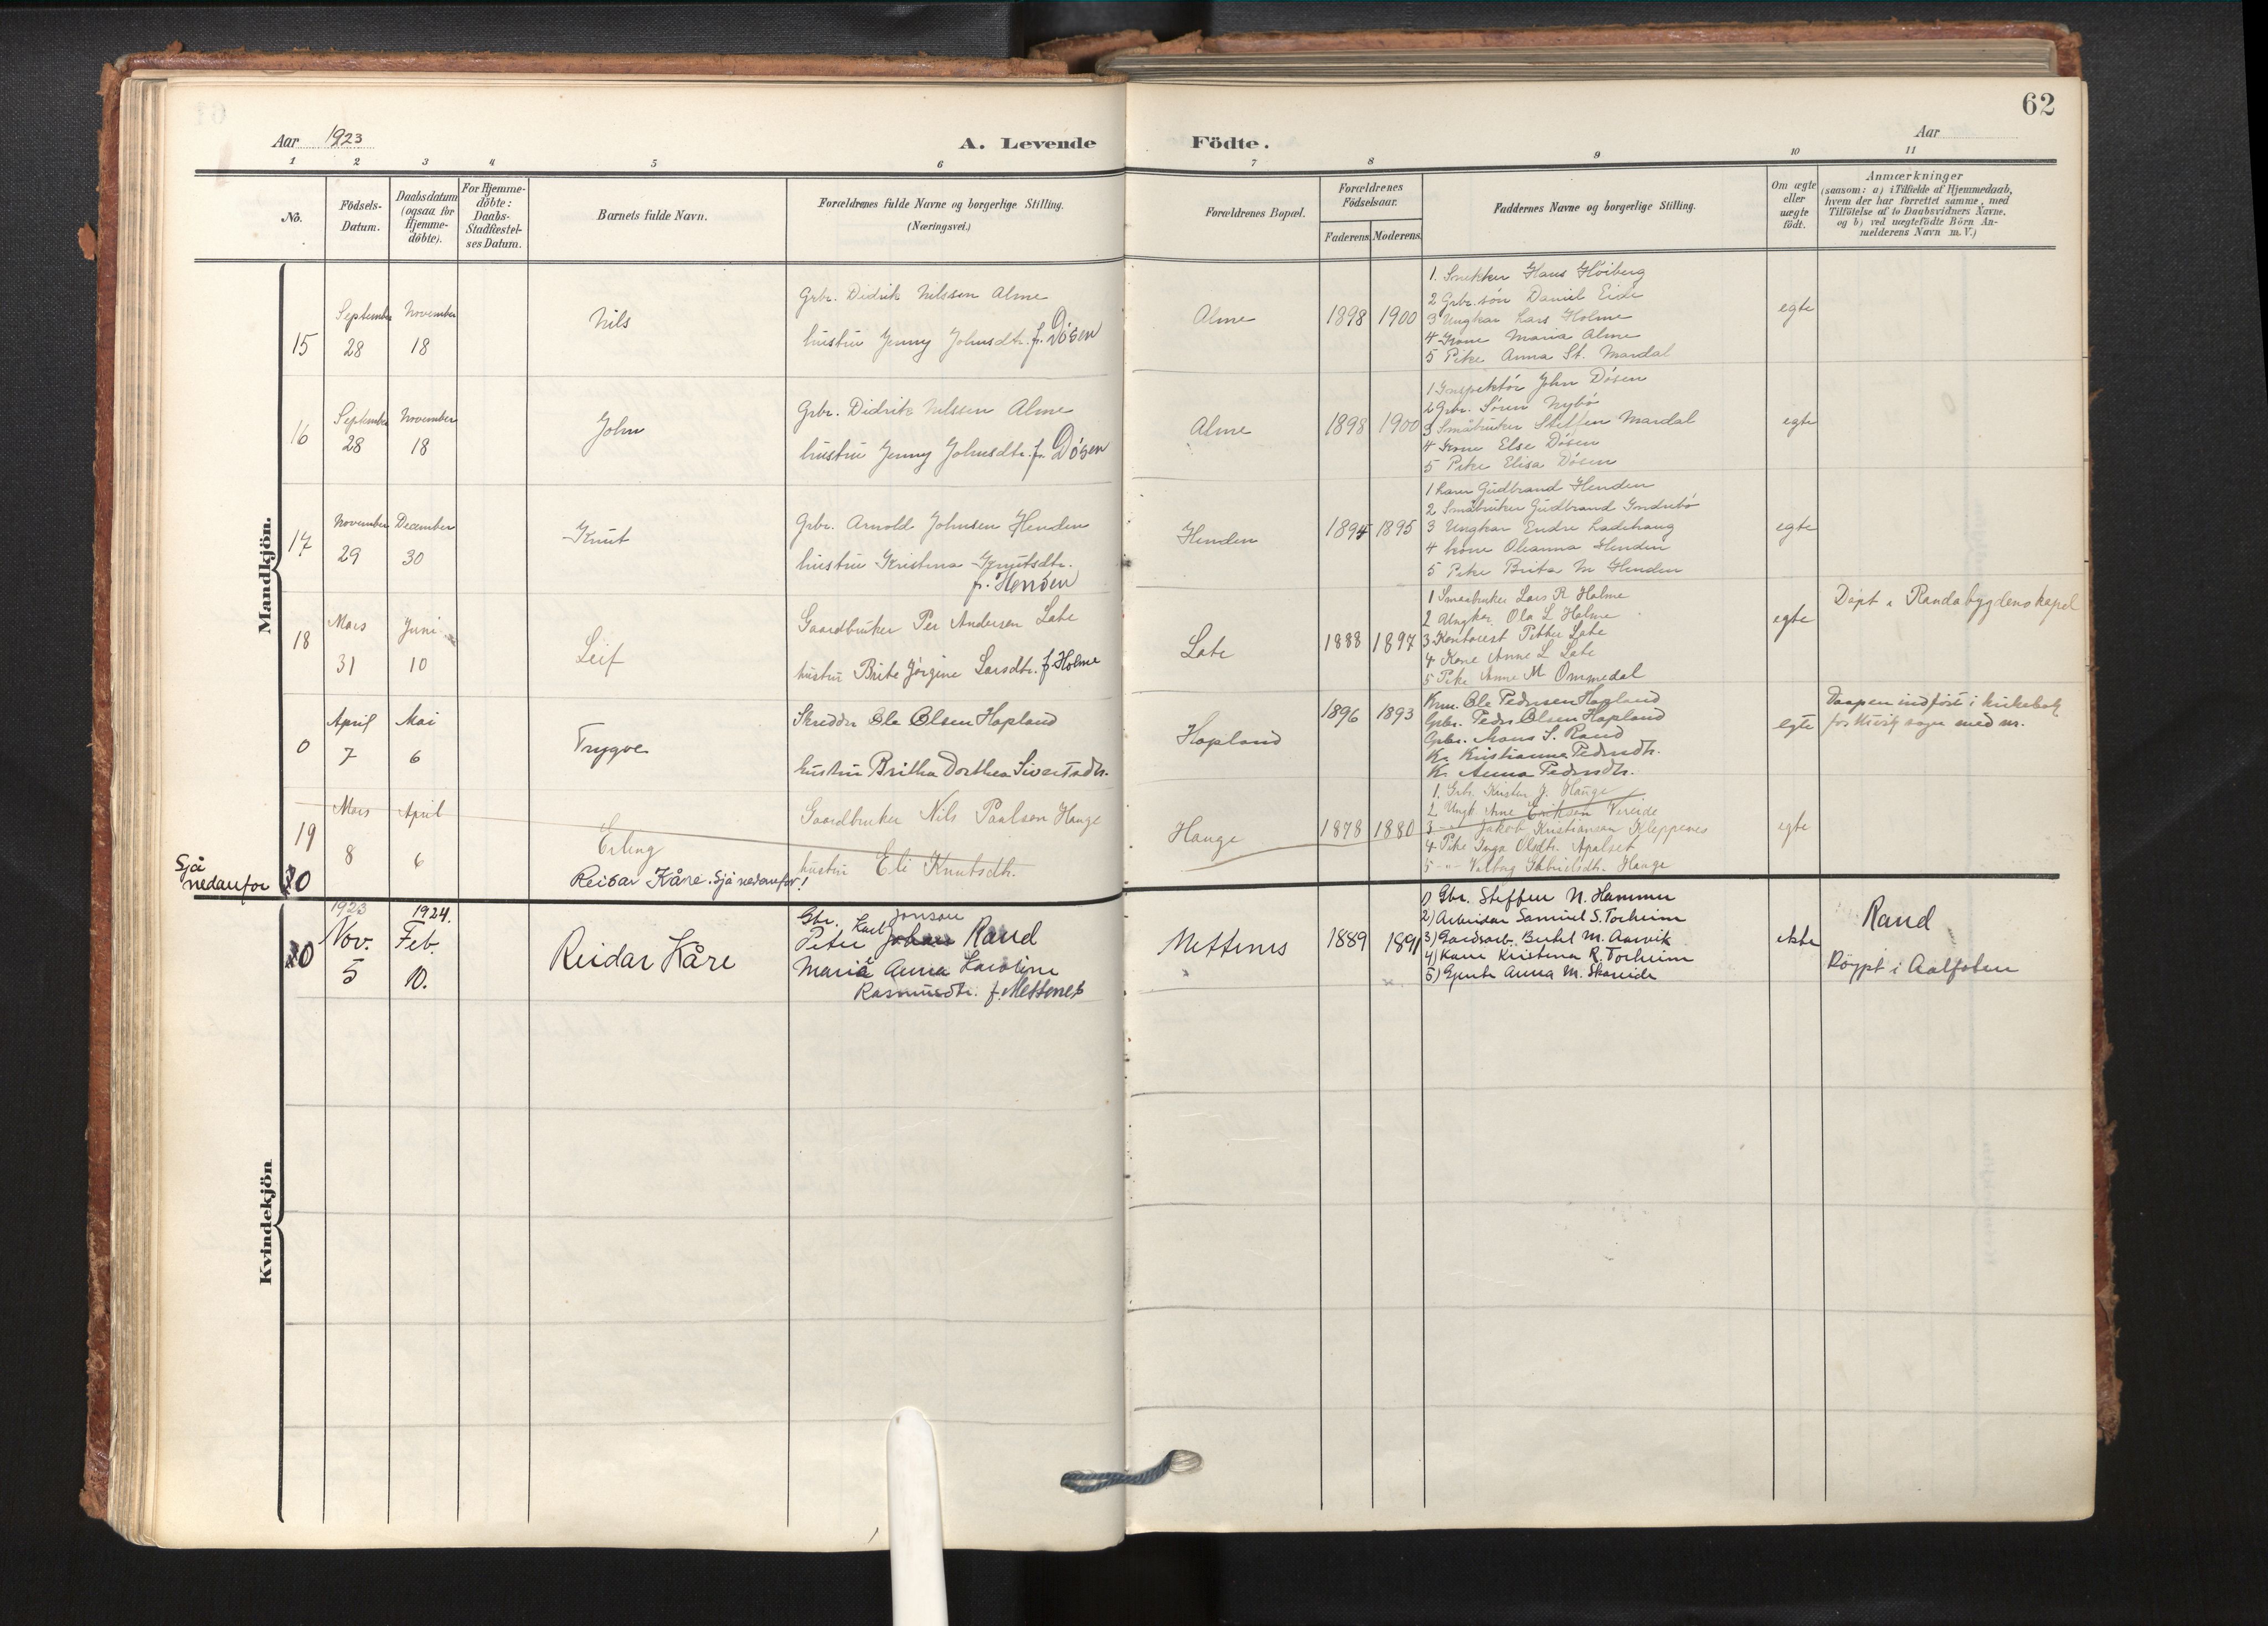 62
Aar 1923
A. Levende Födte.
Aar
1 2 3 4 5 6 7 8 9 10 11
No.
Födsels-Datum.
Daabsdatum (ogsaa for Hjemme-döbte).
For Hjemme-döbte: Daabs-Stadfæstel-ses Datum.
Barnets fulde Navn.
Forældrenes fulde Navne og borgerlige Stilling.
(Næringsvei.)
Forældrenes Bopæl.
Forældrenes Födselsaar.
Faderens Moderens
Faddernes Navne og borgerlige Stilling.
Om ægte eller uægte födt.
Anmærkninger
(saasom: a) i Tilfælde af Hjemmedaab,
hvem der har forrettet samme, med
Tilföielse af to Daabsvidners Navne,
og b) ved uægtefödte Börn An-
melderens Navn m. V.)
Mandkjön.
15
September 28
November 18
Nils
Grbr. Didrik Nilssen Alme
hustru Jenny Johnsdtr. f. Dósen
Alme
1898 1900
1. Snekker Hans Hóiberg
2 Grbr. són Daniel Eide
3 Ungkar Lars Holme
4 Kone Maria Alme
5 Pike Anna St. Mardal
egte
16
September 28
November 18
John
Grbr. Didrik Nilssen Alme
hustru Jenny Johnsdtr. f. Dósen
Alme
1898 1900
1 Inspektór John Dósen
2 Grbr. Sóren Nybó
3 Småbruker Steffen Mardal
4 Kone Else Dósen
5 Pike Elisa Dósen
egte
17
November 29
December 30
Knut
Grbr. Arnold Johnsen Henden
hustru Kristina Knutsdtr.
f. Henden
Henden
1894 1895
1 Kaarm Gudbrand Henden
2 Småbruker Gudbrand Indrebó
3 Ungkar Endre Ladehaug
4 Kone Oleanna Henden
5 Pike Brita M Henden
egte
18
Mars 31
Juni 10
Leif
Gaardbruker Per Andersen Late
hustru Brite Jörgine Larsdtr. f. Holme
Late
1888 1897
1 Smaabruker Lars R Holme
2 Ungkar Ola L Holme
3 Kontorist Petter Late
4 Kone Anne L Late
5 Pike Anne M Ommedal
egte
Döpt i Randabygdens kapel
0
April 7
Mai 6
Trygve
Skredder Ole Olsen Hopland
hustru Britha Dorthea Sivertsdtr.
Hopland
1896 1893
Krm. Ole Pedersen Hopland
Grbr. Peder Olsen Hopland
Grbr. Mons S. Rand
K. Kristianna Pedersdtr.
K. Anna Pedersdtr.
egte
Daapen indfört i kirkebok
for Utvik sogn med nr.
19
Mars 8
April 6
Erling
Gaardbruker Nils Paulsen Hauge
hustru Eli Knutsdtr.
Hauge
1878 1880
1. Grbr. Kristen J. Hauge
2 Ungk. Arne Eriksen Vereide
3 -"- Jakob Kristiansen Kleppenes
4 Pike Inga Olsdtr. Apalset
5 -"- Valborg Gabrielsdtr. Hauge
egte
Sjå nedanfor
20
Reidar Kåre. Sjå nedanfor!
Kvindekjön
20
1923 Nov. 5
1924. Feb. 10.
Reidar Kåre
Gbr. Karl Jonson
Peter Johan Rand
Maria Anna Karoline
Rasmusdtr. f. Mettenes
Mettenes
1889 1891
1) Gbr. Steffen N. Hammer
2) Arbeidar Samuel S. Torheim
3) Gardsarb. Bertel M. Aarvik
4) Kone Kristina R. Torheim
5) Gjente Anna M. Skareide
ekte
Rand
Döypt i Aalfoten